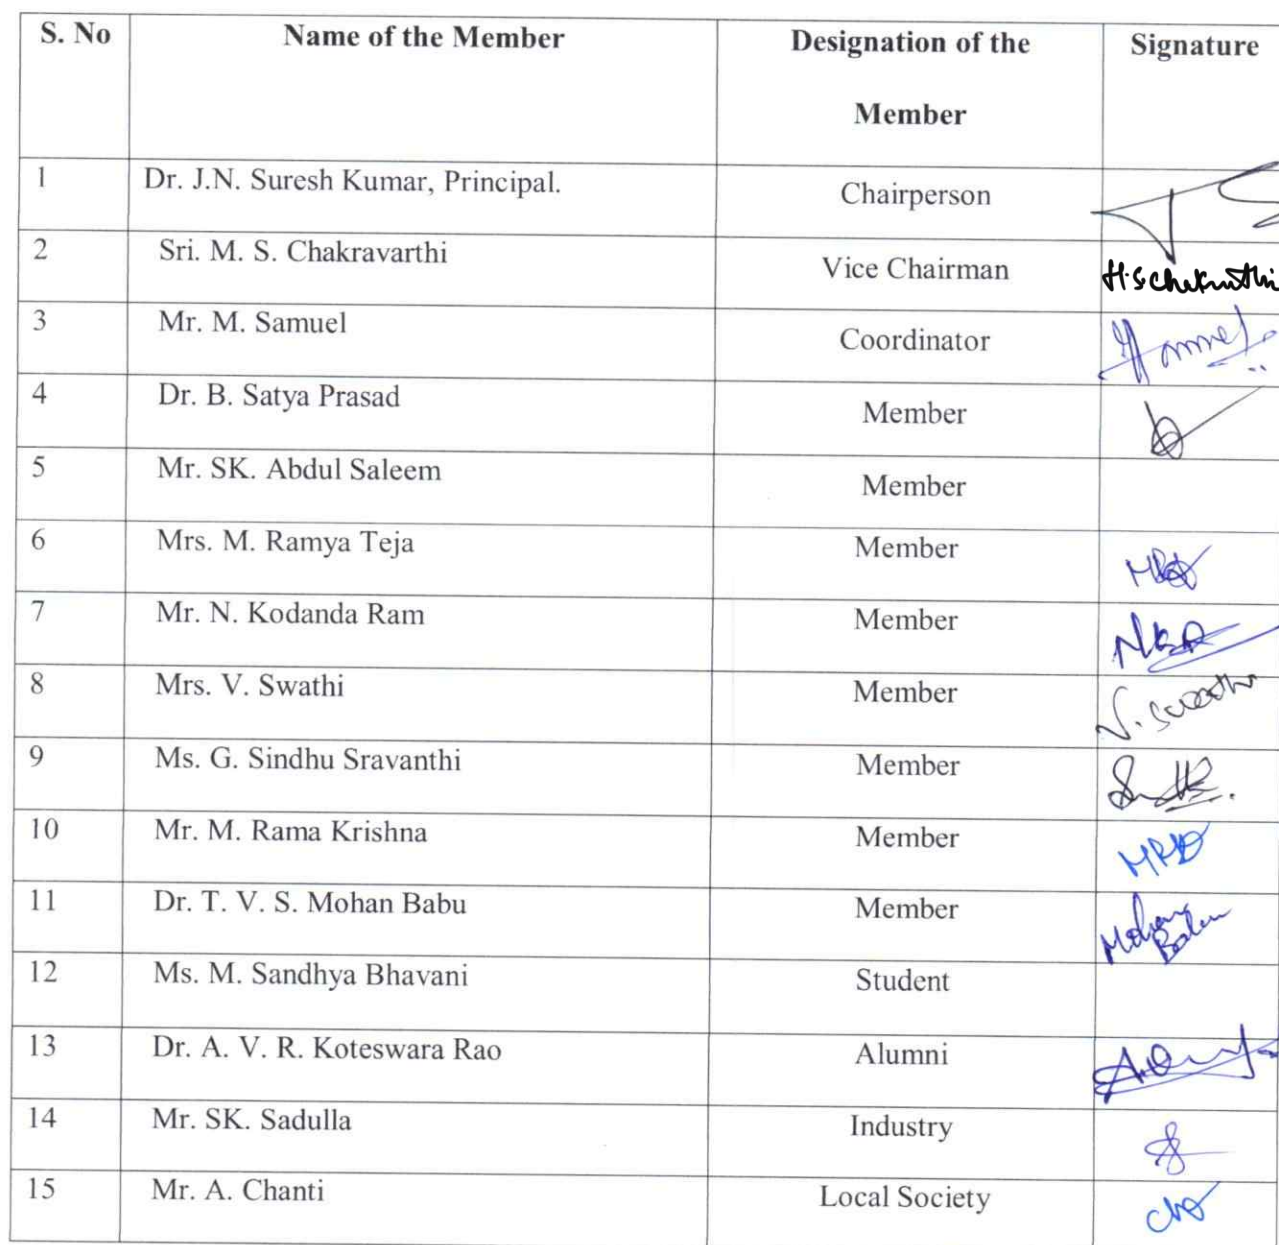 S. No Name of the Member Designation of the Signature
Member
1 Dr. J.N. Suresh Kumar, Principal. Chairperson
2 Sri. M. S. Chakravarthi Vice Chairman
3 Mr. M. Samuel Coordinator
4 Dr. B. Satya Prasad Member
5 Mr. SK. Abdul Saleem Member
6 Mrs. M. Ramya Teja Member
7 Mr. N. Kodanda Ram Member
8 Mrs. V. Swathi Member V. Swathi
9 Ms. G. Sindhu Sravanthi Member
10 Mr. M. Rama Krishna Member
11 Dr. T. V. S. Mohan Babu Member Mohan
Babu
12 Ms. M. Sandhya Bhavani Student
13 Dr. A. V. R. Koteswara Rao Alumni
14 Mr. SK. Sadulla Industry
15 Mr. A. Chanti Local Society